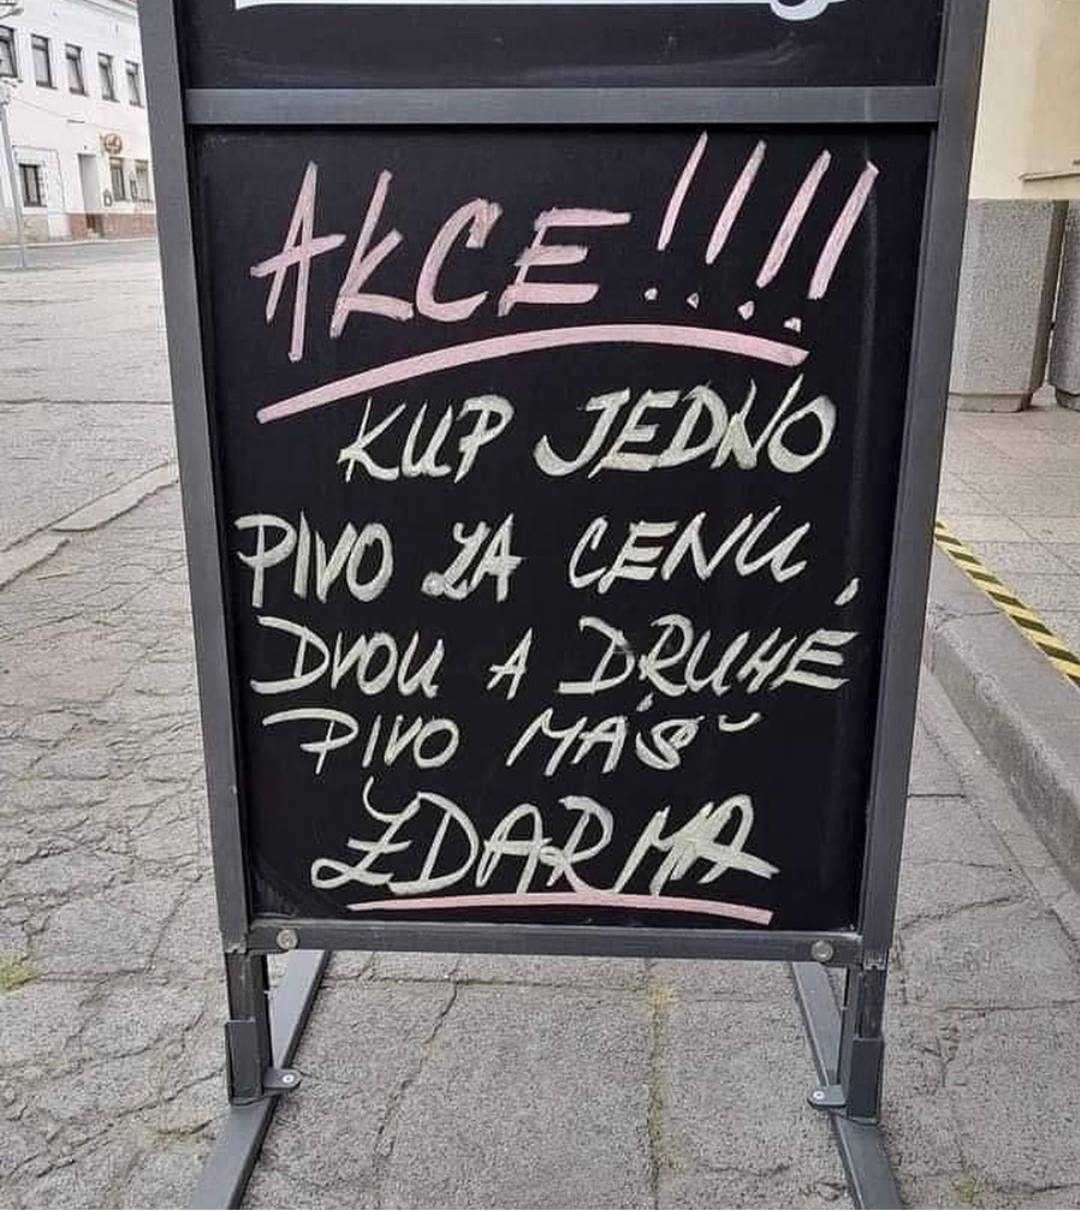 AKCE!!!!
KUP JEDNO
PIVO ZA CENU
DVOU A DRUHÉ
PIVO MÁŠ
ZDARMA